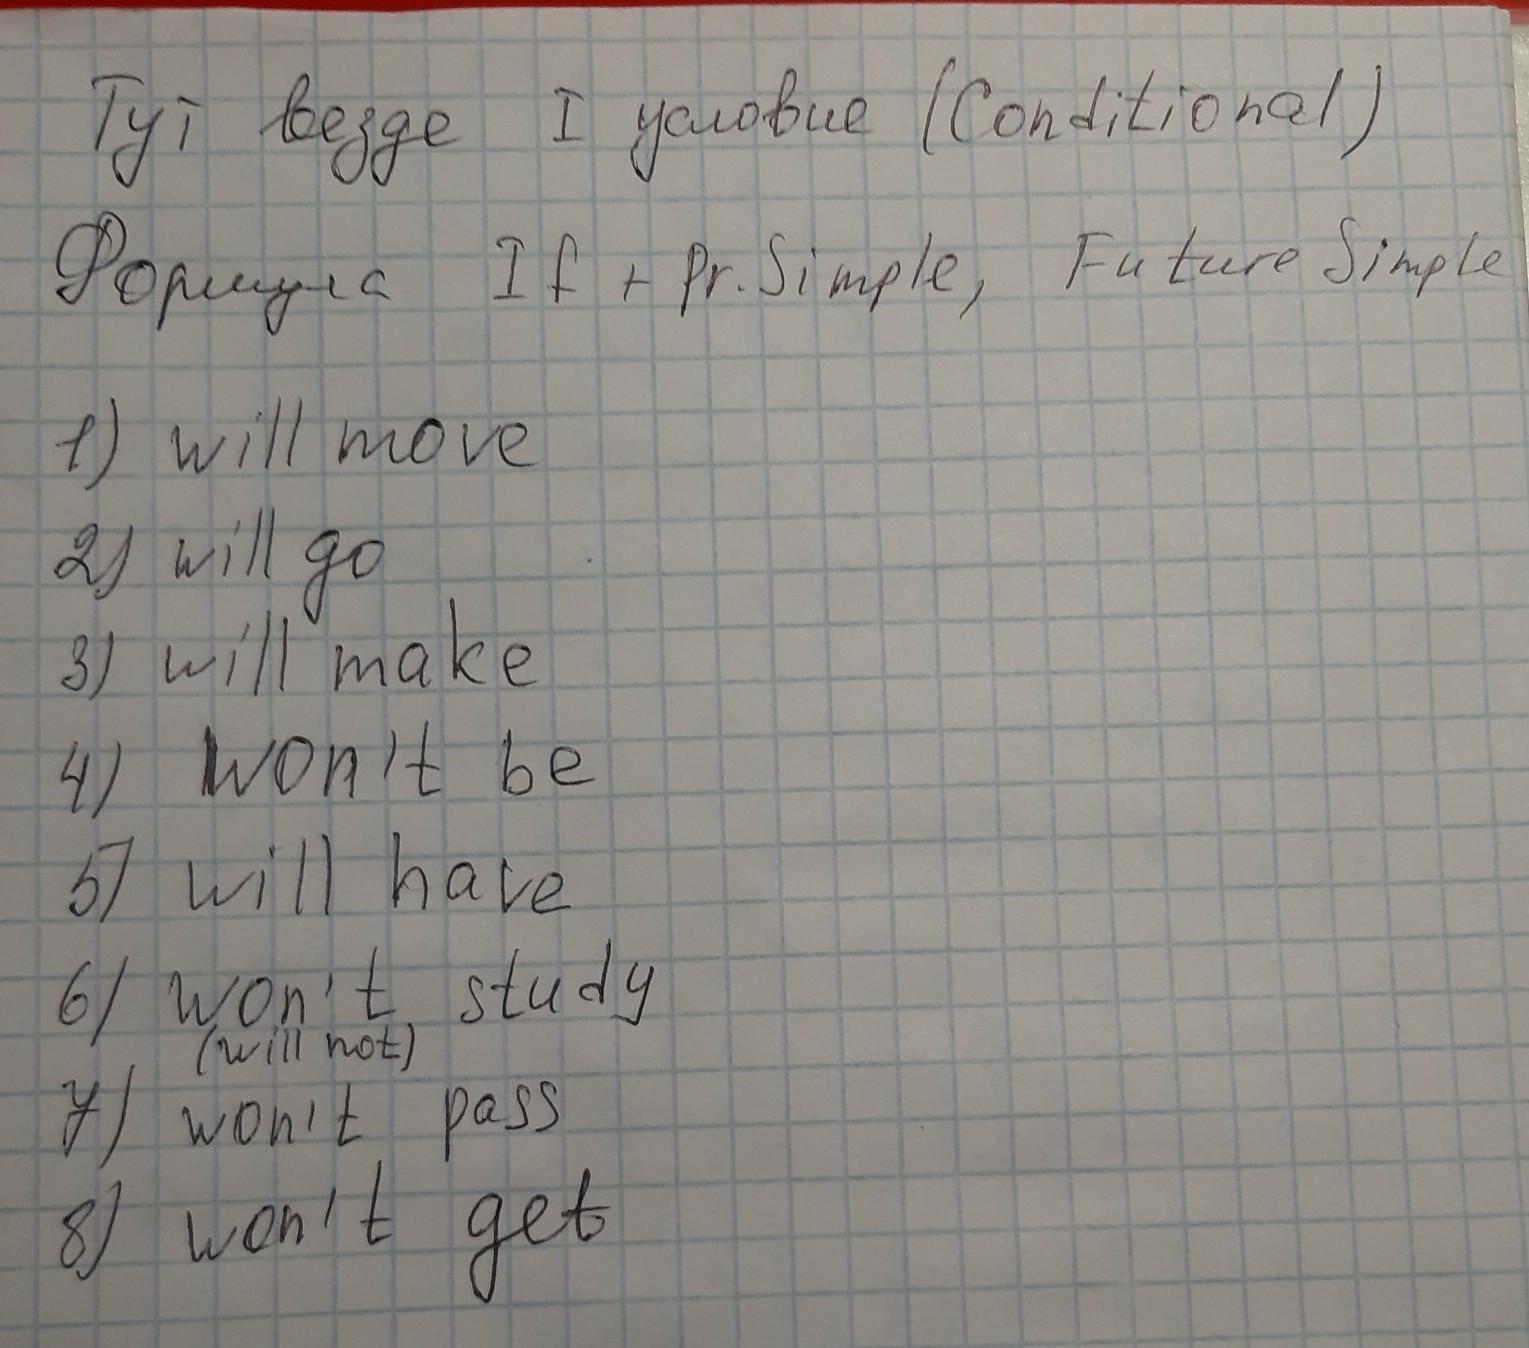 Тут везде I условие (Conditional)
Формула If + Pr. Simple, Future Simple
1) will move
2) will go
3) will make
4) won't be
5) will have
6) won't study
(will not)
7) won't pass
8) won't get